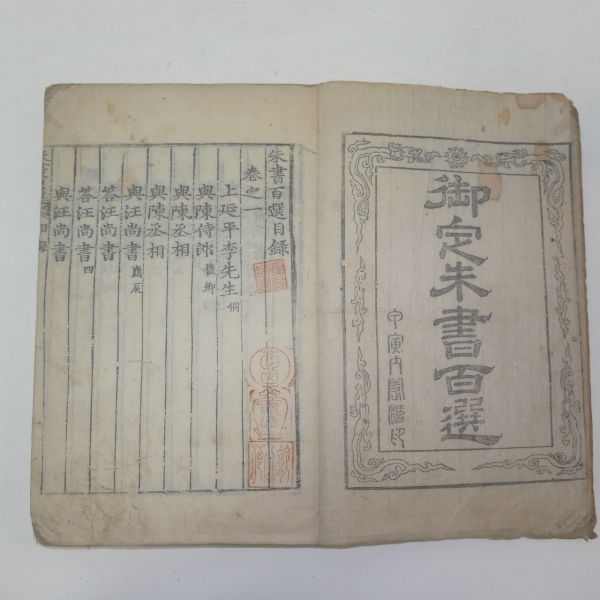 御定朱書百選
甲寅內閣活印
朱書百選目錄
卷之一
上延平李先生侗
與陳侍郎俊卿
與陳丞相
與陳丞相
與汪尚書應辰
答汪尚書
答汪尚書四
與汪尚書